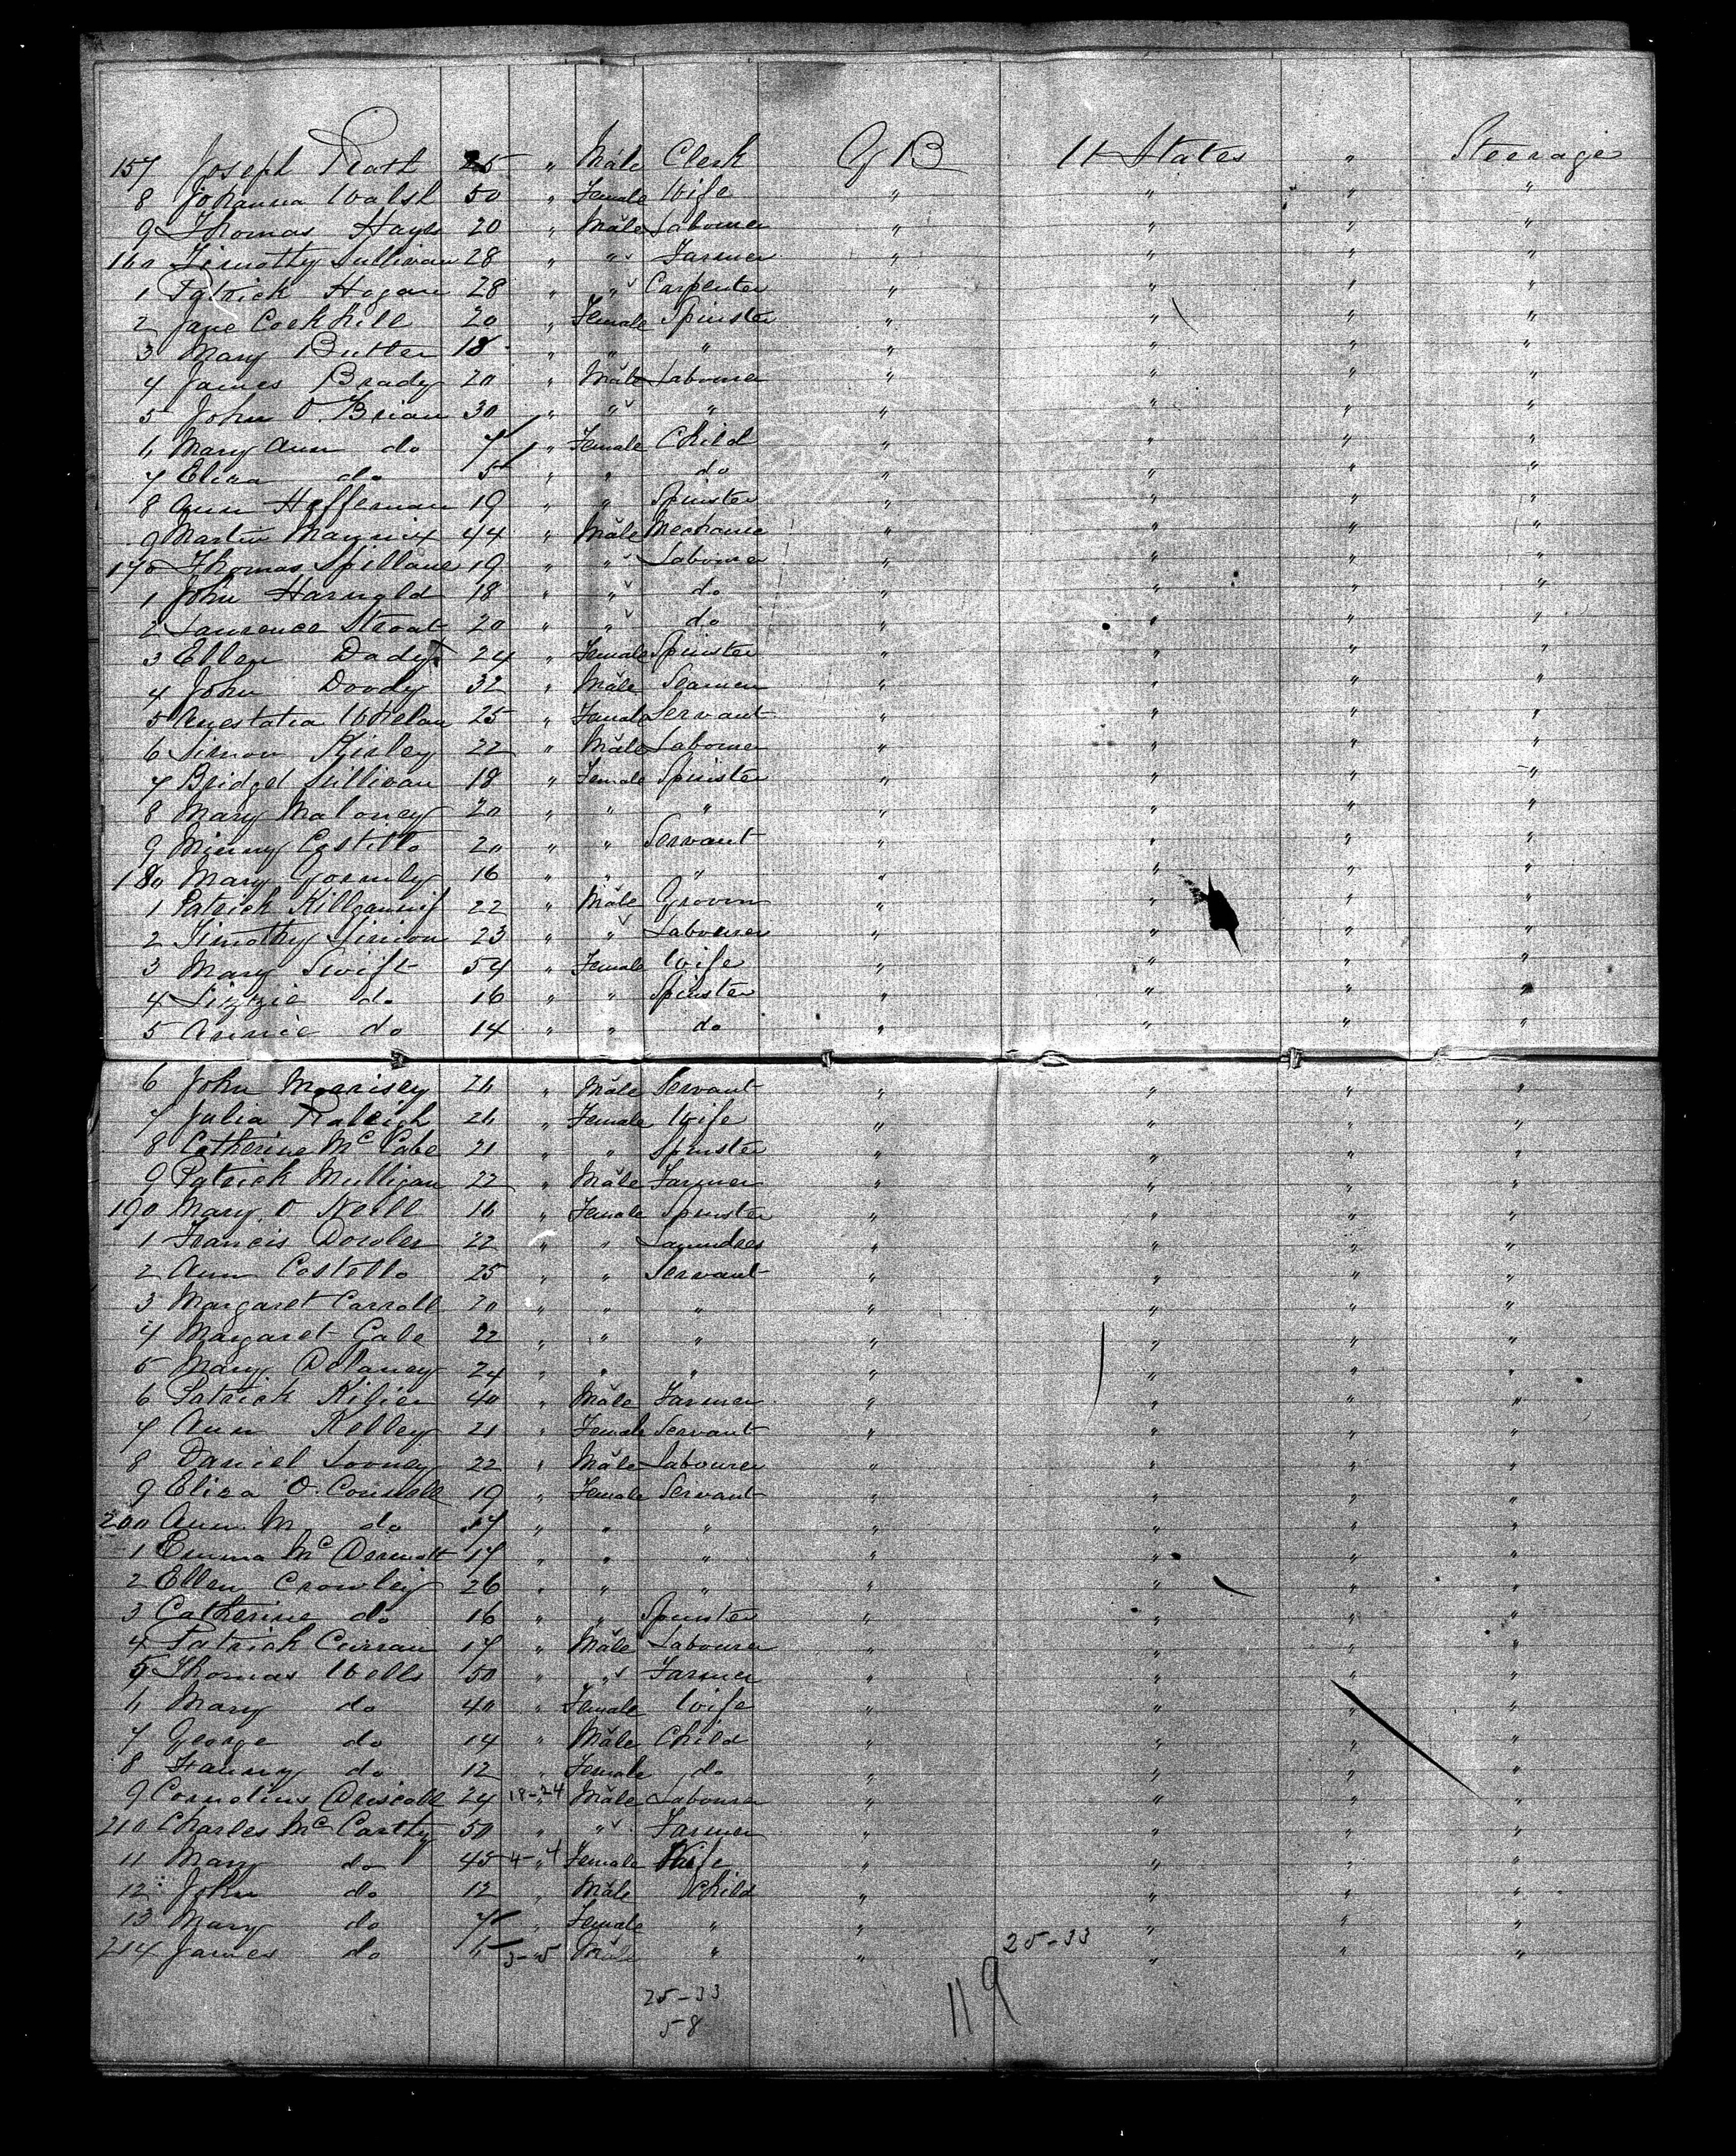 157 Joseph 25 " Male Clerk G B U States " Steerage
8 Johanna Walsh 50 " Female Wife " " " "
9 Thomas Hayes 20 " Male Labourer " " " "
160 Timothy Sullivan 28 " " Farmer " " " "
1 Patrick Hogan 28 " " Carpenter " " " "
2 Jane Cockhill 20 " Female Spinster " " " "
3 Mary Butler 18 " " " " " " "
4 James Brady 20 " Male Labourer " " " "
5 John O. Brian 30 " " " " " " "
6 Mary Ann do 7 " Female Child " " " "
7 Eliza do 5 " " do " " " "
8 Ann Heffernan 19 " " Spinster " " " "
9 Martin 44 " Male Mechanic " " " "
170 Thomas Spillane 19 " " Labourer " " " "
1 John Harnold 18 " " do " " " "
2 Laurence 20 " " do " " " "
3 Ellen Dady 24 " Female Spinster " " " "
4 John Doody 32 " Male Seaman " " " "
5 Anestatia Whelan 25 " Female Servant " " " "
6 Simon Kirley 22 " Male Labourer " " " "
7 Bridget Sullivan 18 " Female Spinster " " " "
8 Mary Maloney 20 " " " " " " "
9 Minny 20 " " Servant " " " "
180 Mary Gormly 16 " " " " " " "
1 Patrick 22 " Male Groom " " " "
2 Timothy 23 " " Labourer " " " "
3 Mary Swift 54 " Female Wife " " " "
4 Lizzie do 16 " " Spinster " " " "
5 Annie do 14 " " do " " " "
6 John Morrisey 26 " Male Servant " " " "
7 Julia Raleigh 26 " Female Wife " " " "
8 Catherine Mc Cabe 21 " " Spinster " " " "
9 Patrick Mulligan 22 " Male Farmer " " " "
190 Mary O Neill 16 " Female Spinster " " " "
1 Francis Dowler 22 " " Laundres " " " "
2 Ann Costello 25 " " Servant " " " "
3 Margaret Carroll 20 " " " " " " "
4 Margaret Cabe 22 " " " " " " "
5 Mary Delaney 24 " " " " " " "
6 Patrick 40 " Male Farmer " " " "
7 Ann Kelley 21 " Female Servant " " " "
8 Daniel Looney 22 " Male Labourer " " " "
9 Eliza O. Connell 19 " Female Servant " " " "
200 Ann. M do 17 " " " " " " "
1 Emma Mc Dermott 17 " " " " " " "
2 Ellen Crowley 26 " " " " " " "
3 Catherine do 16 " " Spinster " " " "
4 Patrick Curran 17 " Male Labourer " " " "
5 Thomas Wells 50 " " Farmer " " " "
6 Mary do 40 " Female Wife " " " "
7 George do 14 " Male Child " " " "
8 Fanny do 12 " Female do " " " "
9 Cornelius Driscoll 24 18-24 " Male Labourer " " " "
210 Charles Mc Carthy 50 " " Farmer " " " "
11 Mary do 45 4-4 " Female Wife " " " "
12 John do 12 " Male Child " " " "
13 Mary do 7 " Female " " " " "
214 James do 6 3-5 " Male " " " " "
25-33
25-33
58
119